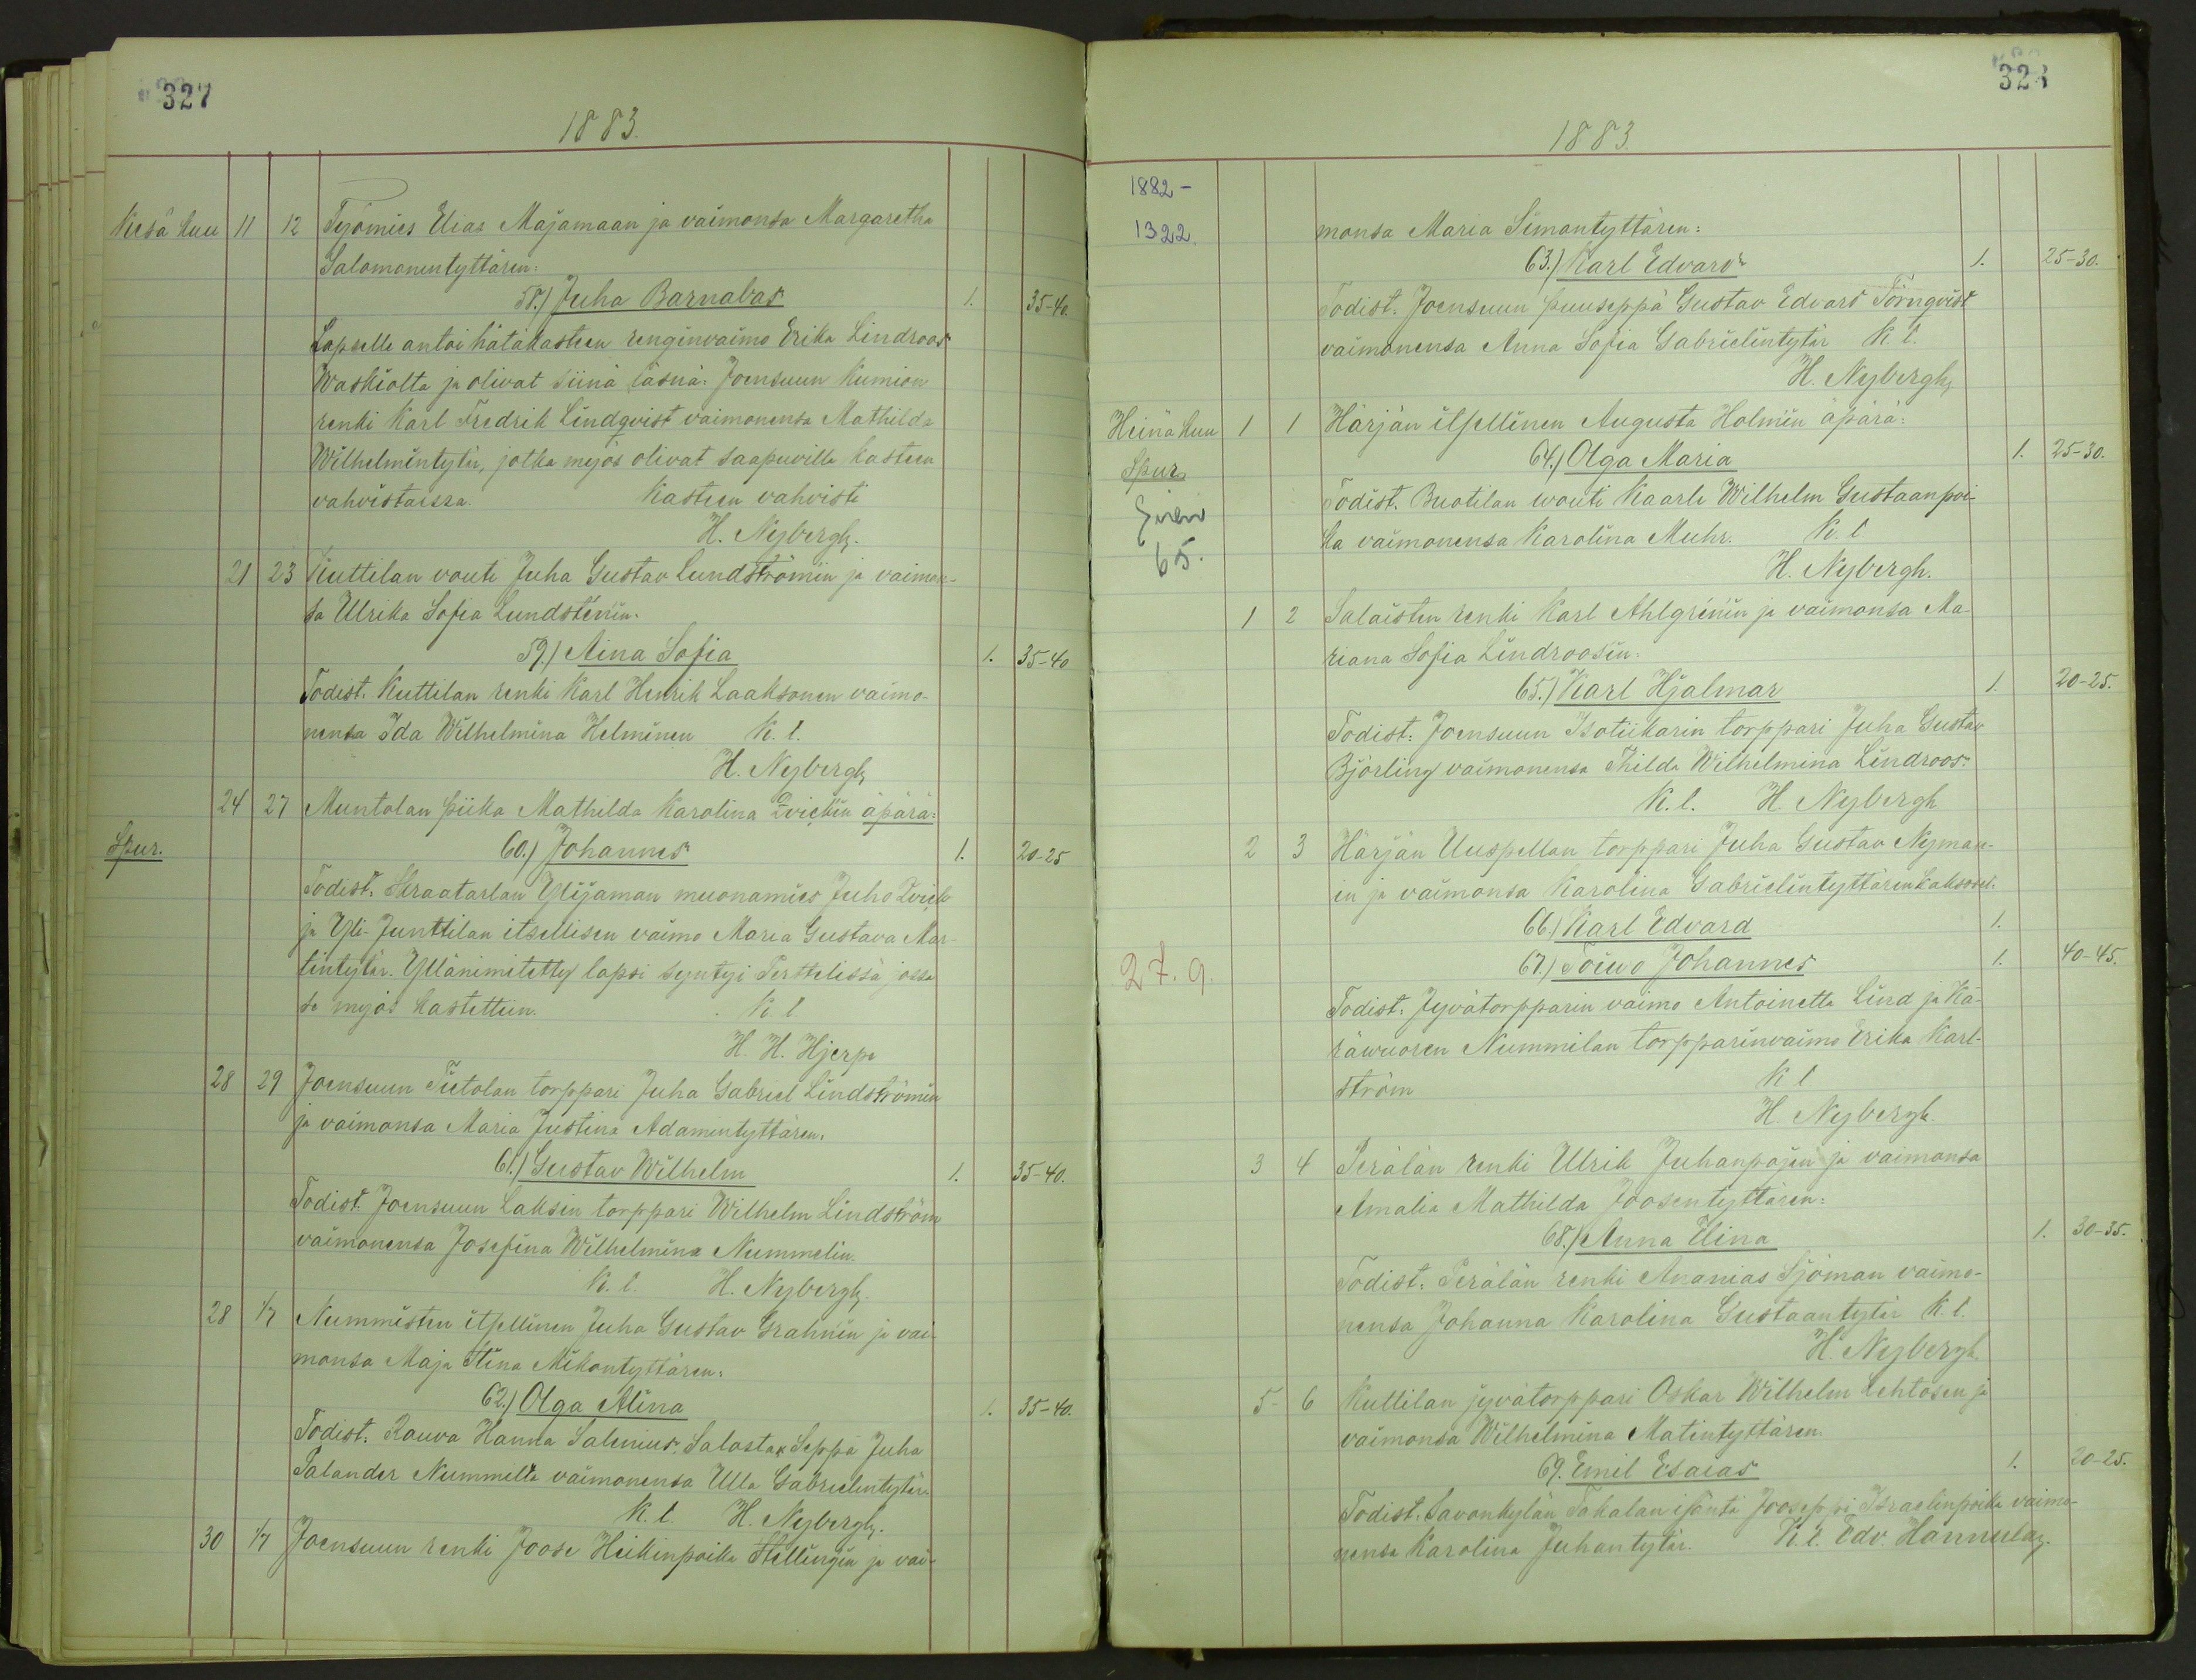 327
1883.
Kesä kuu 11 12 Työmies Elias Majamaan ja vaimonsa Margaretha
Salomonentyttären:
58.) Juha Barnabas 1. 35-40.
Lapselle antoi hätäkasteen renginvaimo Erika Lindroos
Waskiolta ja olivat siinä läsnä: Joensuun Kumion
renki Karl Fredrik Lindqvist vaimonensa Mathilda
Wilhelmintytär, jotka myös olivat saapuvilla kasteen
vahvistaissa. Kasteen vahvisti
H. Nybergh.
21 23 Kuttilan vouti Juha Gustav Lundströmin ja vaimon-
sa Ulrika Sofia Lundsténin.
59.) Aina Sofia 1. 35-40
Todist. Kuttilan renki Karl Henrik Laaksonen vaimo-
nensa Ida Wilhelmina Helminen K. l.
H. Nybergh
24 27 Muntolan piika Mathilda Karolina Qvickin äpärä:
Spur. 60.) Johannes 1. 20-25
Todist. Straatarlan Ylijaman muonamies Juho Qvick
ja Yli-Junttilan itsellisen vaimo Maria Gustava Mar-
tintytär. Yllänimitetty lapsi syntyi Perttelissä jossa
se myös kastettiin. K. l
H. H. Hjerpe
28 29 Joensuun Tietolan torppari Juha Gabriel Lindströmin
ja vaimonsa Maria Justina Adamintyttären.
61.) Gustav Wilhelm 1. 35-40.
Todist. Joensuun Laksin torppari Wilhelm Lindström
vaimonensa Josefina Wilhelmina Nummelin.
K. l. H. Nybergh.
28 1/7 Nummisten itsellinen Juha Gustav Grahnin ja vai-
monsa Maja Stina Mikontyttären.
62.) Olga Alina 1. 35-40.
Todist: Rouva Hanna Salenius Salosta Seppä Juha
Salander Nummilta vaimonensa Ulla Gabrielintytär.
K. l. H. Nybergh.
30 1/7 Joensuun renki Joose Heikinpoika Stellingin ja vai-
328
1883.
1882 -
1322.
monsa Maria Simontyttären:
63.) Karl Edvard 1. 25-30.
Todist. Joensuun puuseppä Gustav Edvard Törnqvist
vaimonensa Anna Sofia Gabrielintytär K. l.
H. Nybergh
Heinä kuu 1 1 Härjän itsellinen Augusta Holmin äpärä:
Spur. 64.) Olga Maria 1. 25-30.
Todist. Buotilan vouti Kaarle Wilhelm Gustaanpoi-
65. ka vaimonensa Karolina Muhr. K. l
H. Nybergh.
1 2 Salaisten renki Karl Ahlgrénin ja vaimonsa Ma-
riana Sofia Lindroosin:
65.) Karl Hjalmar 1. 20-25.
Todist: Joensuun Isotiikarin torppari Juha Gustav
Björling vaimonensa Thilda Wilhelmina Lindroos.
K. l. H. Nybergh
2 3 Härjän Uuspellan torppari Juha Gustav Nyman-
in ja vaimonsa Karolina Gabrielintyttären kaksoset:
66.) Karl Edvard 1.
27. 9. 67.) Toiwo Johannes 1. 40-45.
Todist. Jyvätorpparin vaimo Antoinetta Lind ja Kä-
räwuoren Nummilan torpparinvaimo Erika Karl-
ström K l
H. Nybergh.
3 4 Perälän renki Ulrik Juhanpojan ja vaimonsa
Amalia Mathilda Joosentyttären:
68.) Anna Elina 1. 30-35.
Todist. Perälän renki Ananias Sjöman vaimo-
nensa Johanna Karolina Gustaantytär K. l.
H. Nybergh.
5 6 Kuttilan jyvätorppari Oskar Wilhelm Lehtosen ja
vaimonsa Wilhelmina Matintyttären.
69. Emil Esaias 1. 20-25.
Todist. Savonkylän Takalan isäntä Jooseppi Israelinpoika vaimo-
nensa Karolina Juhantytär. K. l. Edv. Hannula.